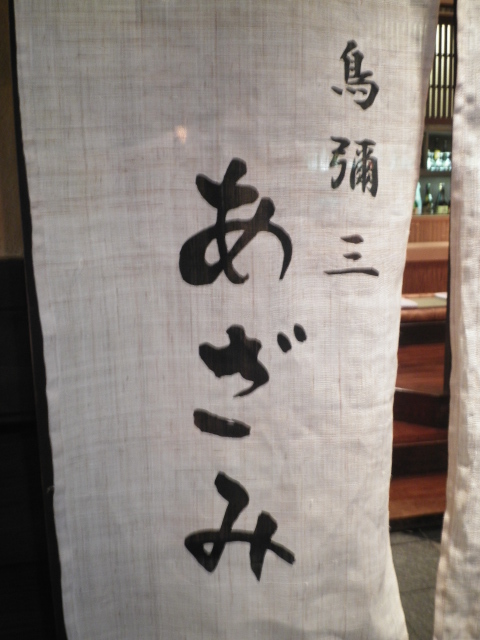 鳥彌三
あざみ